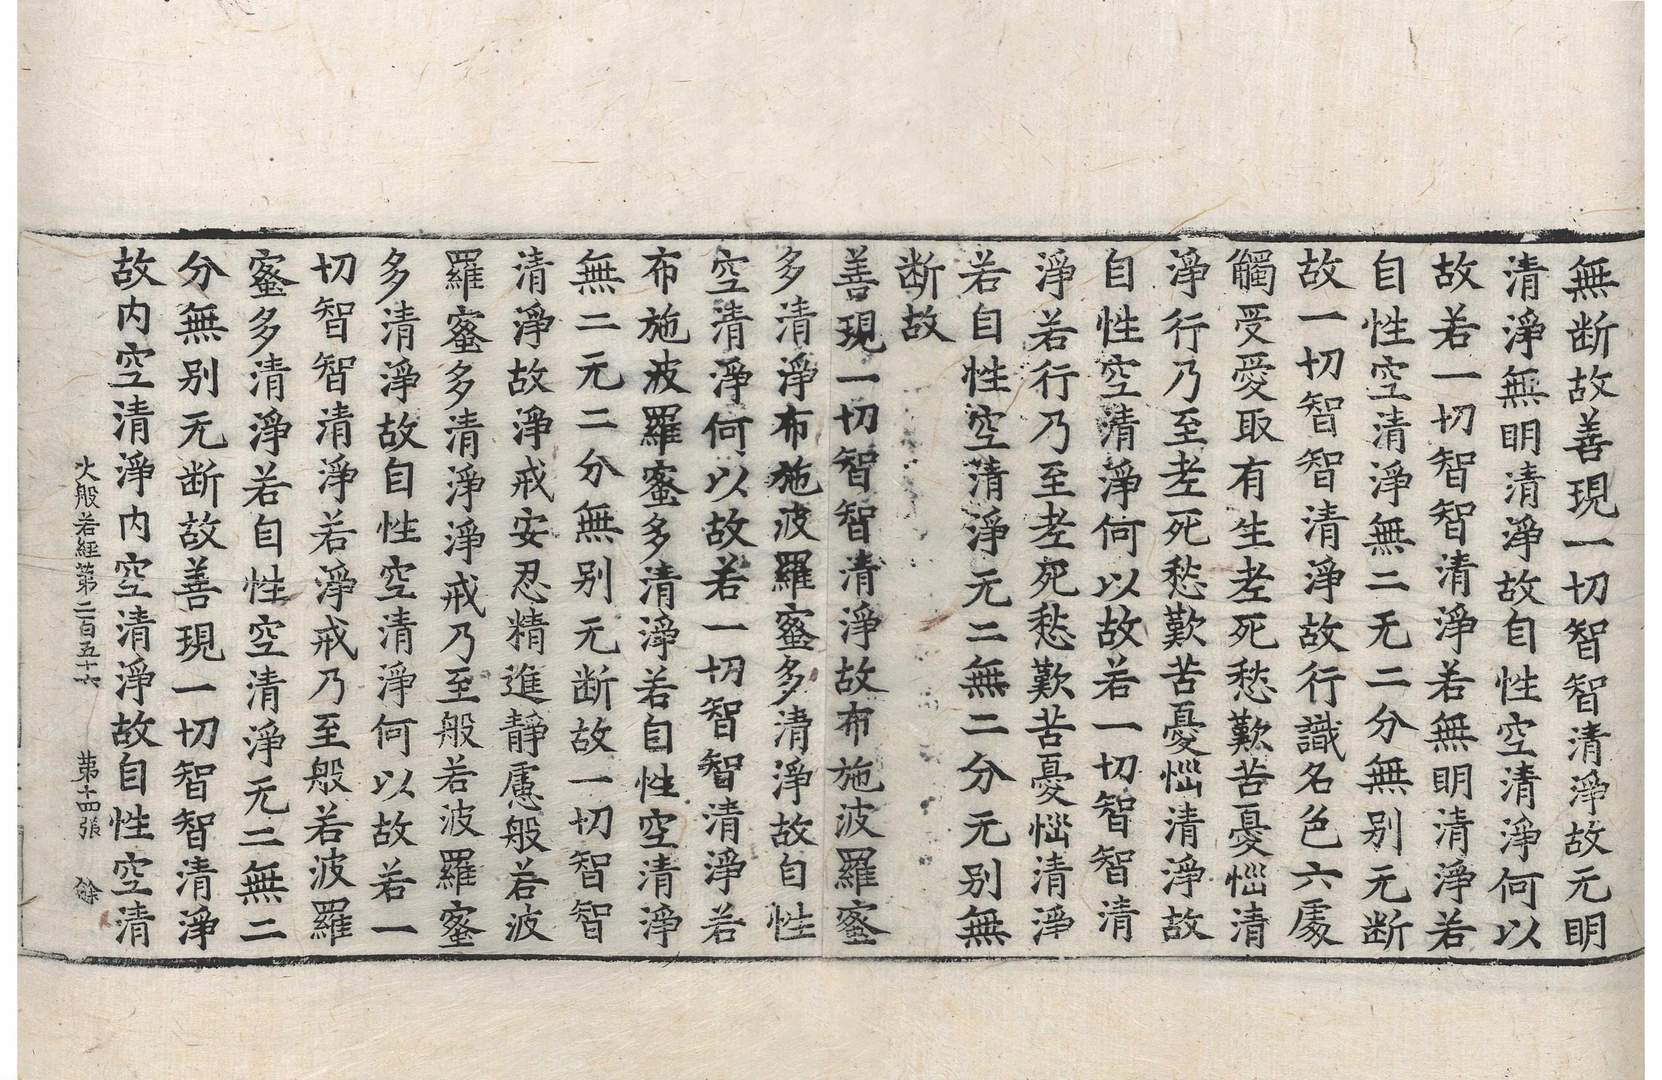 無断故善現一切智智清淨故无明
清淨無明清淨故自性空清淨何以
故若一切智智清淨若無明清淨若
自性空清淨無二无二分無別无断
故一切智智清淨故行識名色六處
觸受愛取有生老死愁歎苦憂惱清
淨行乃至老死愁歎苦憂惱清淨故
自性空清淨何以故若一切智智清
淨若行乃至老死愁歎苦憂惱清淨
若自性空清淨无二無二分无別無
断故
善現一切智智清淨故布施波羅蜜
多清淨布施波羅蜜多清淨故自性
空清淨何以故若一切智智清淨若
布施波羅蜜多清淨若自性空清淨
無二无二分無別无断故一切智智
清淨故淨戒安忍精進靜慮般若波
羅蜜多清淨淨戒乃至般若波羅蜜
多清淨故自性空清淨何以故若一
切智智清淨若淨戒乃至般若波羅
蜜多清淨若自性空清淨无二無二
分無別无断故善現一切智智清淨
故内空清淨内空清淨故自性空清
大般若經第二百五十六 第十四張 餘